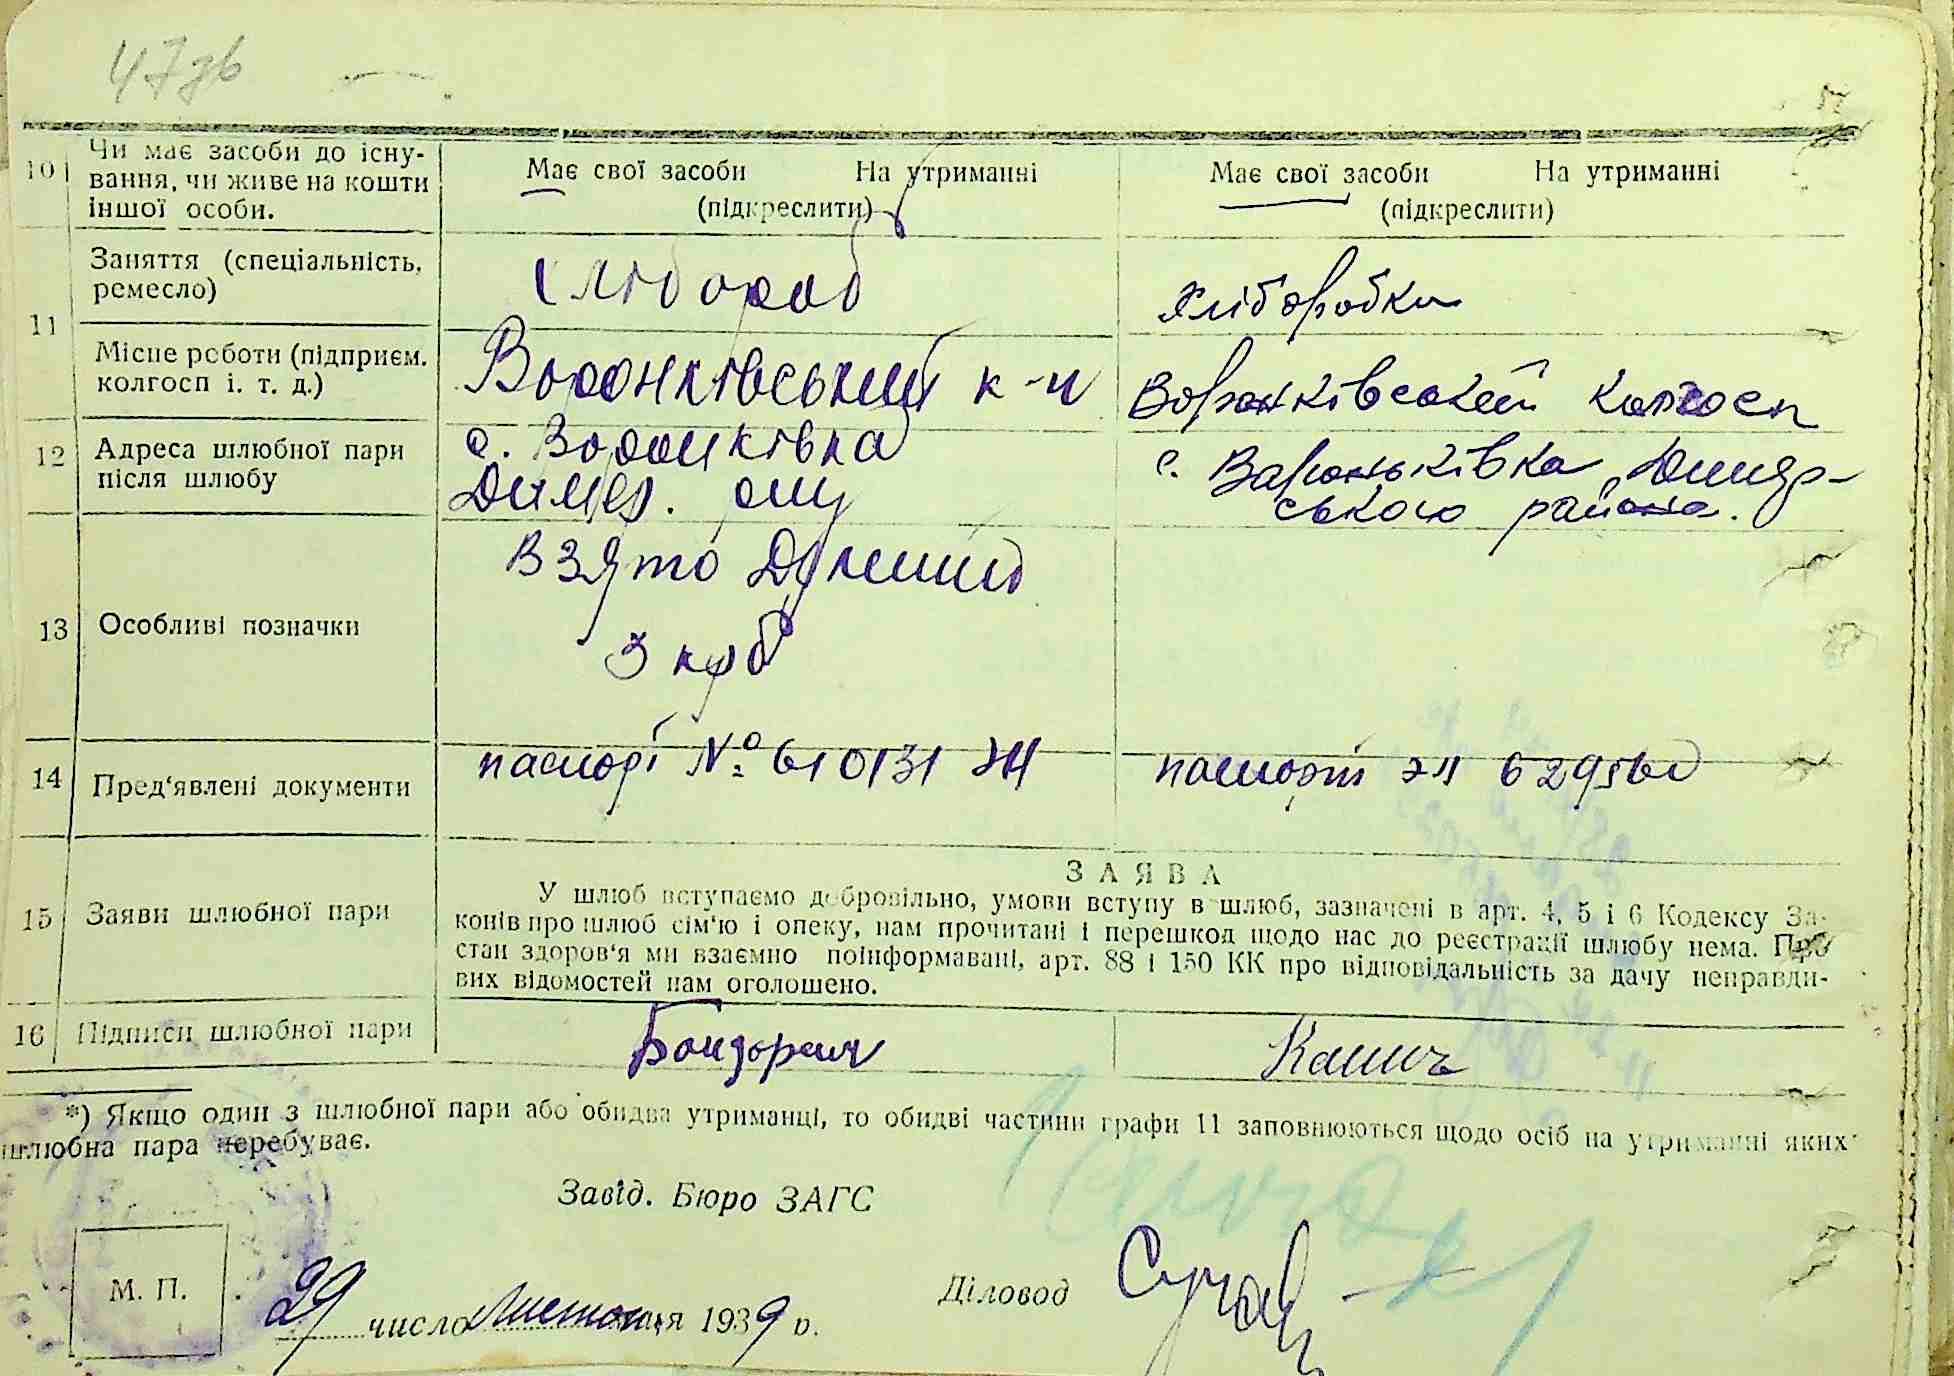 47 зв
10 Чи має засоби до існу-
вання, чи живе на кошти
іншої особи.
Має свої засоби На утриманні
(підкреслити)
Має свої засоби На утриманні
(підкреслити)
11 Заняття (спеціальність,
ремесло)
хлібороб
хліборобка
Місце роботи (підприєм.
колгосп і. т. д.)
Воронківський к-п
Воронківський колгосп
12 Адреса шлюбної пари
після шлюбу
с. Воронківка
Димер. р-ну
с. Вороньківка Димер-
ського района.
13 Особливі позначки
Взято
3 крб
14 Пред'явлені документи
паспорт № 610131
паспорт
15 Заяви шлюбної пари
ЗАЯВА
У шлюб вступаємо добровільно, умови вступу в шлюб, зазначені в арт. 4, 5 і 6 Кодексу За-
конів про шлюб сім'ю і опеку, нам прочитані і перешкод щодо нас до реєстрації шлюбу нема. Про
стан здоров'я ми взаємно поінформавані, арт. 88 і 150 КК про відповідальність за дачу неправди-
вих відомостей нам оголошено.
16 Підписи шлюбної пари
*) Якщо один з шлюбної пари або обидва утриманці, то обидві частини графи 11 заповнюються щодо осіб на утриманні яких
шлюбна пара перебуває.
Завід. Бюро ЗАГС
М. П.
Діловод
29 число листопадя 1939 р.